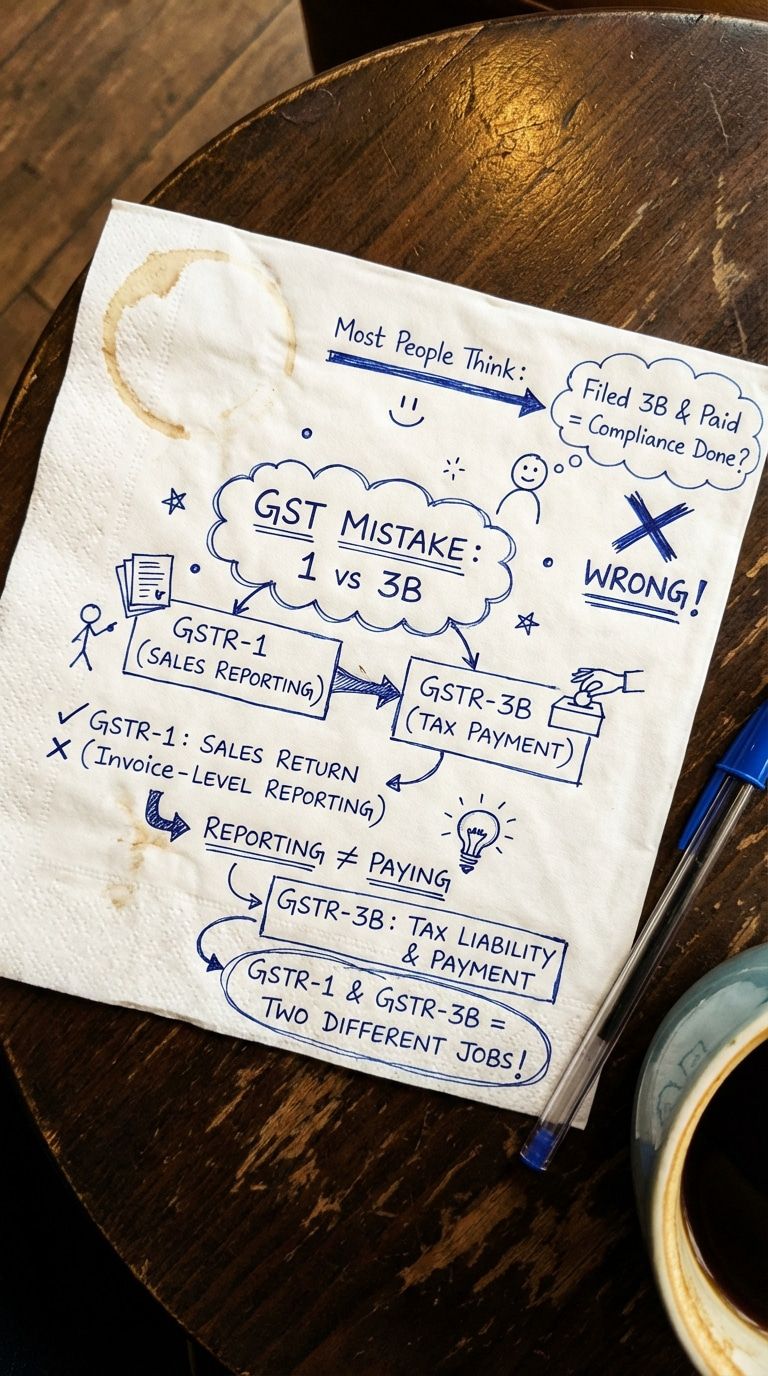 Most People Think:
Filed 3B & Paid
= Compliance Done?
GST MISTAKE:
1 vs 3B
WRONG!
GSTR-1
(SALES REPORTING)
GSTR-3B
(TAX PAYMENT)
✓ GSTR-1: SALES RETURN
× (INVOICE-LEVEL REPORTING)
REPORTING ≠ PAYING
GSTR-3B: TAX LIABILITY
& PAYMENT
GSTR-1 & GSTR-3B =
TWO DIFFERENT JOBS!